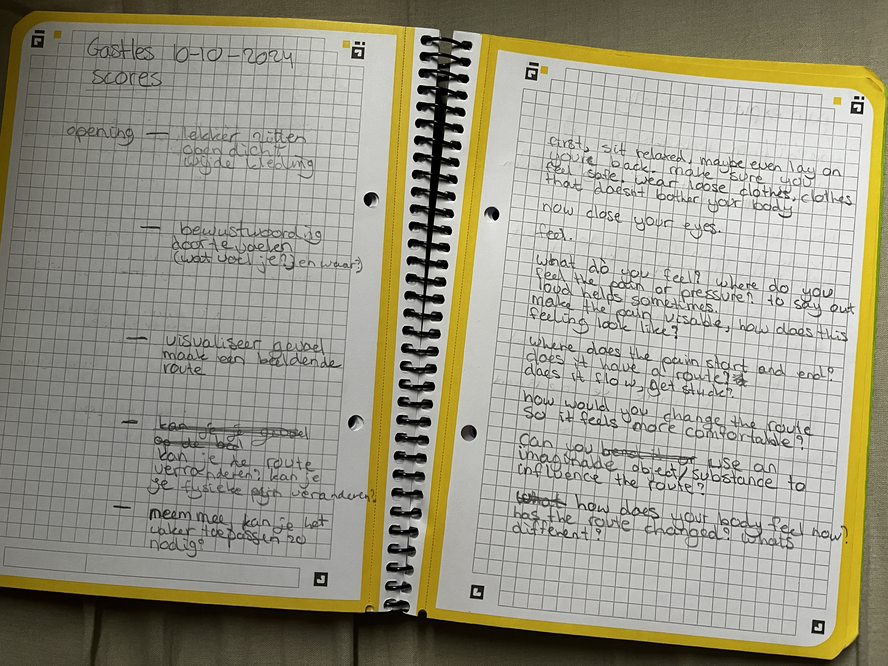 Gastles 10-10-2024
scores
opening — lekker zitten
ogen dicht
wijde kleding
— bewustwording
door te voelen
(wat voel je?) en waar?)
— visualiseer gevoel
maak een beeldende
route
— kan je je gevoel
op de
kan je de route
verranderen? kan je
je fysieke pijn veranderen?
— meemmee kan je het
vaker toepassen zo
nodig?
first, sit relaxed, maybe even lay on
you're back. make sure you
feel safe. wear loose clothes, clothes
that doesnt bother your body
now close your eyes.
feel.
what do you feel? where do you
feel the pain or pressure? to say out
loud helps sometimes.
make the pain visable, how does this
feeling look like?
where does the pain start and end?
does it have a route?
does it flow, get stuck?
how would you change the route
so it feels more comfortable?
can you use an
imaginable object/substance to
influence the route?
what how does your body feel now?
has the route changed? whats
different?